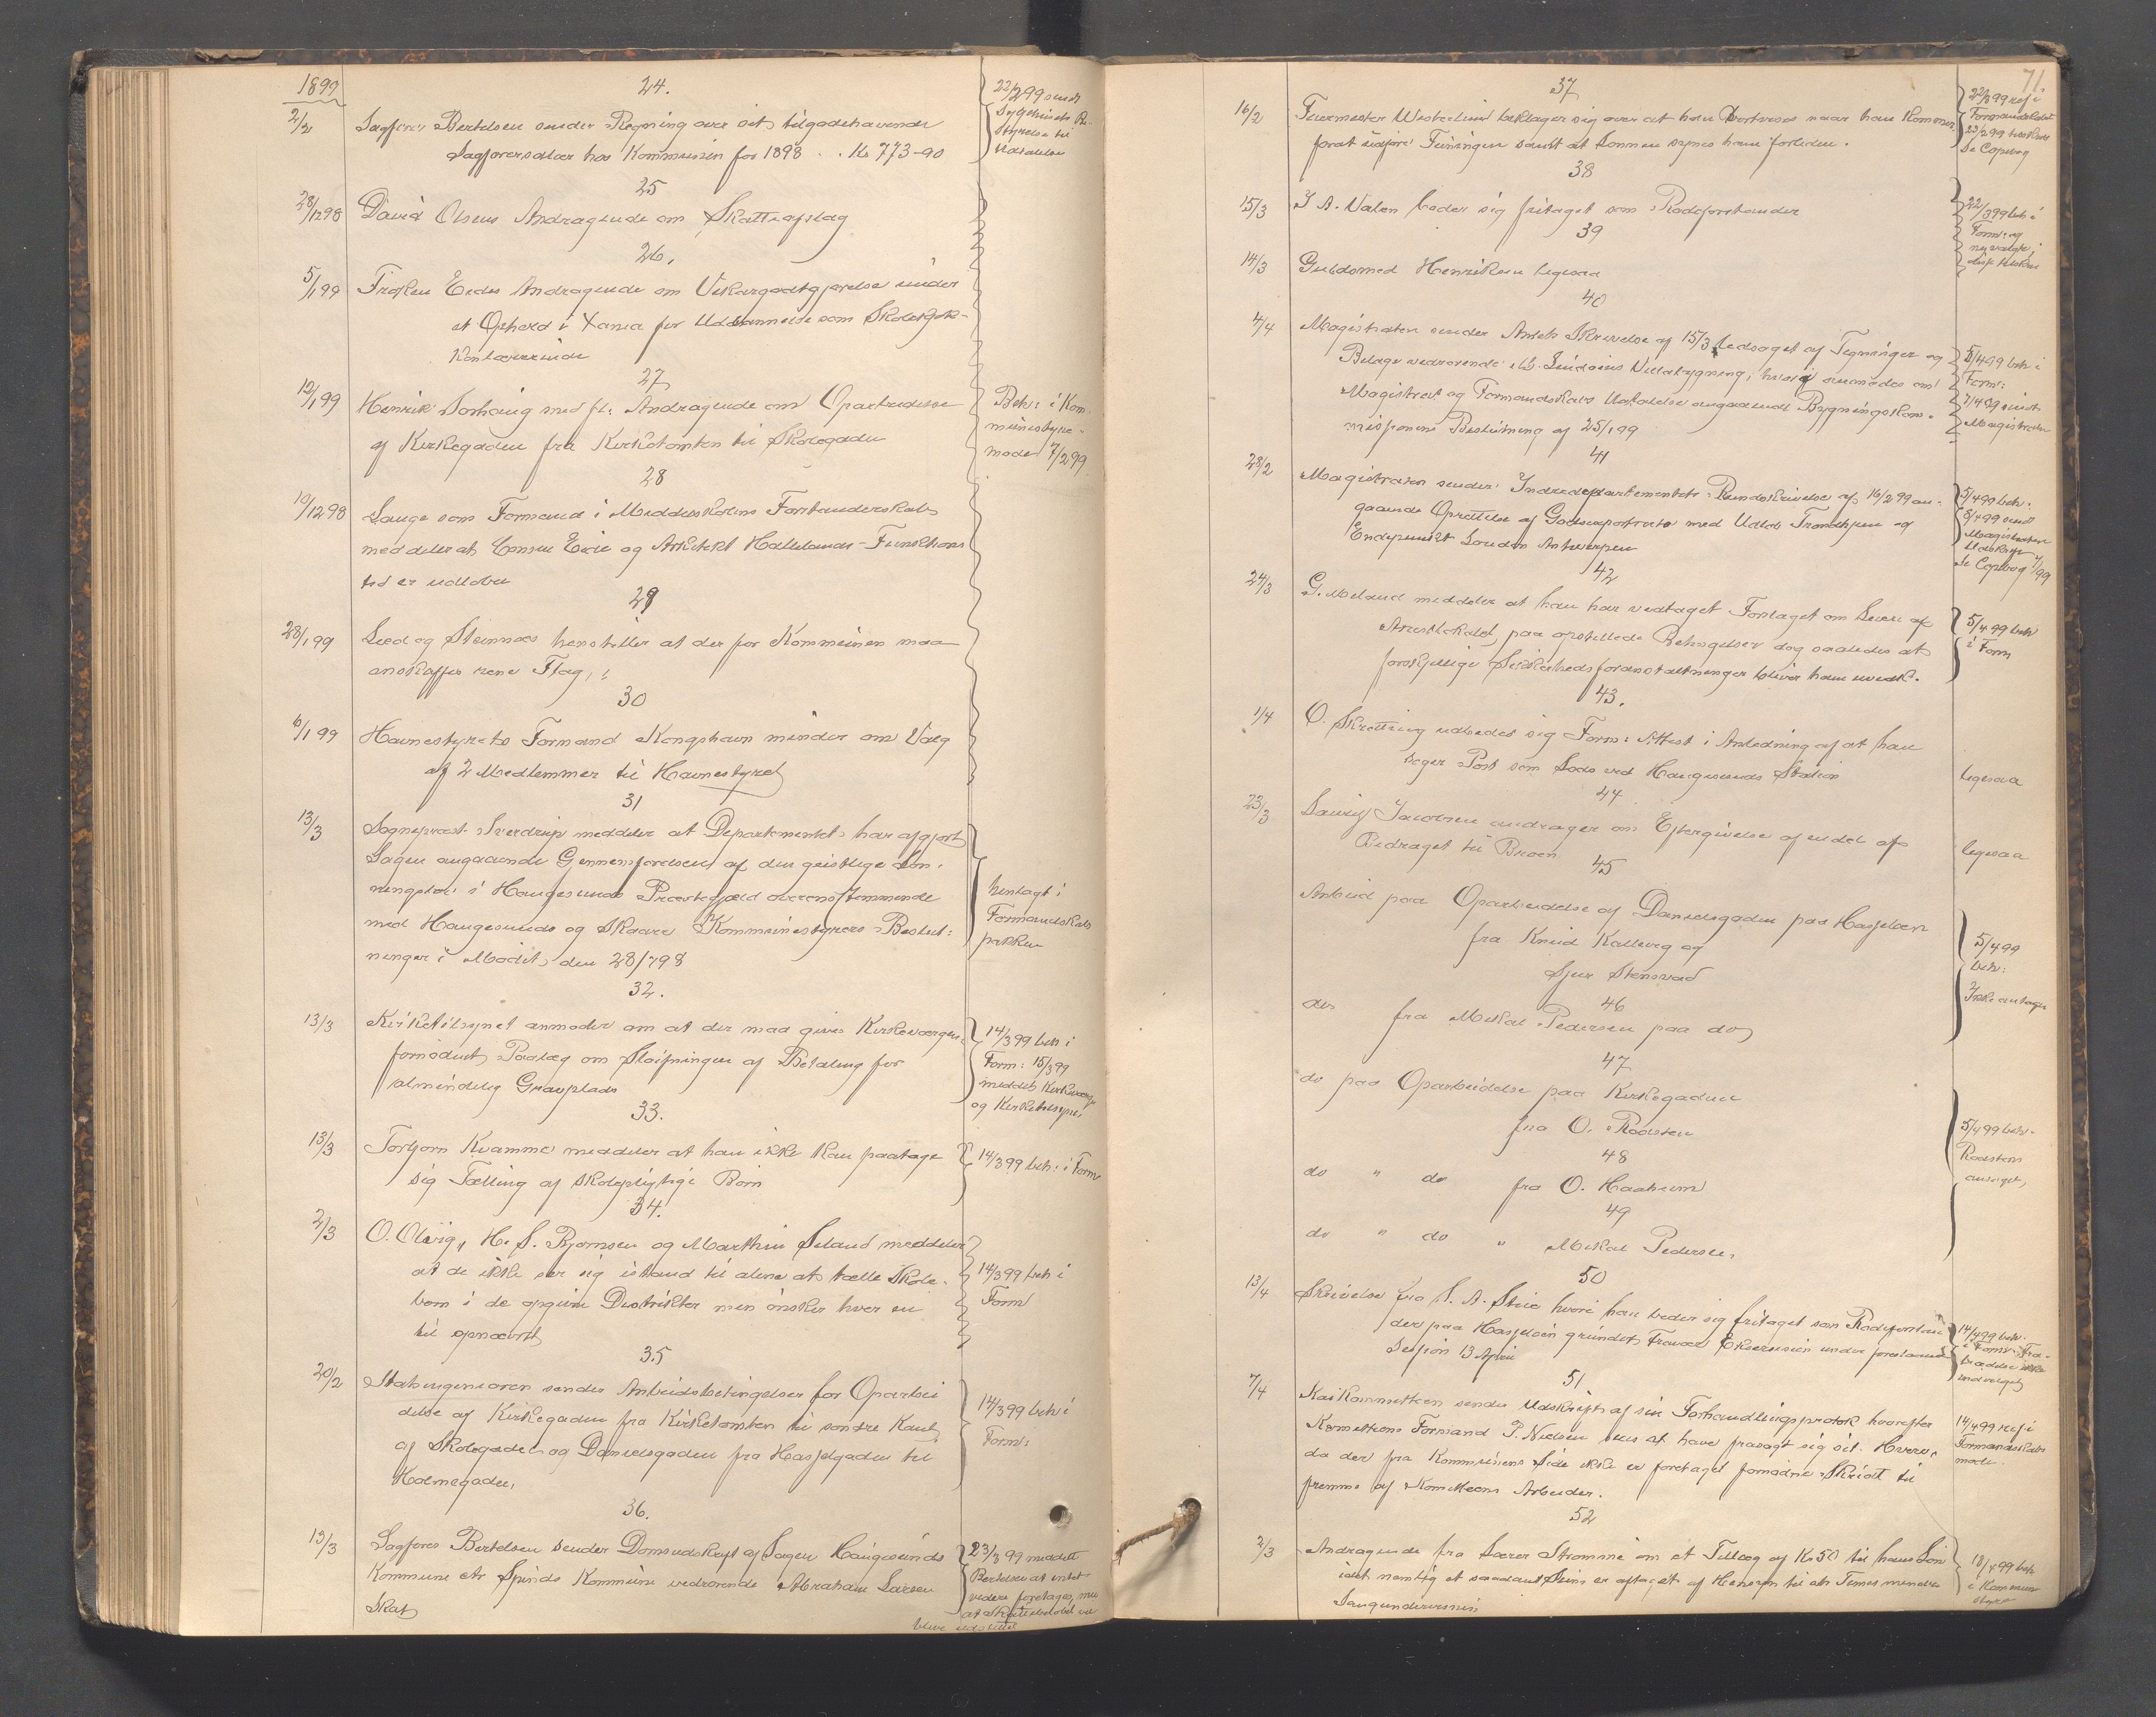 1899
24.
22/2 99 sendt
2/2
Sagfører Bertelsen sender Regning over sit tilgodehavende
Sagførersalær hos Kommunen for 1898 . . Kr 773-90
25
28/12 98
David Olsens Andragende om Skatteafslag
26.
5/1 99
Frøken Eides Andragende om Vikargodtgjørelse under
et Ophold i Xania for Uddannelse som Skolekjøk-
kenlærerinde
27
12/1 99
Henrik Sørhaug med fl. Andragende om Oparbeidelse
af Kirkegaden fra Kirketomten til Skolegaden
Beh: i Kom
munestyre-
møde 7/2 99
28
10/12 98
Lange som Formand i Middelskolens Forstanderskab
meddeler at Consul Eide og Arkitekt Hallelands Funktions
tid er udløbet
29
28/1 99
Lied og Steinnæs henstiller at der for Kommunen maa
anskaffes rene Flag,
30
6/1 99
Havnestyrets Formand Kongshavn minder om Valg
af 2 Medlemmer til Havnestyret
31
13/3
Sogneprest Sverdrup meddeler at Departementet har afgjort
Sagen angaaende Gjennemførelsen af den geistlige Løn-
ningslov i Haugesunds Præstegjæld overensstemmende
med Haugesunds og Skaare Kommunestyrers Beslut-
ninger i Mødet den 28/7 98
henlagt i
Formandskabs
pakken
32.
13/3
Kirketilsynet anmoder om at der maa gives Kirkeværgen
fornødent Paalæg om Sløifningen af Betaling for
almindelig Gravplads
14/3 99 beh i
Form: 15/3 99
meddelt Kirkeværge
og Kirketilsynet
33.
13/3
Torbjørn Kvamme meddeler at han ikke kan paatage
sig Tælling af skolepligtige Børn
14/3 99 beh: i Form
34.
2/3
O. Olvig, H. S. Bjørnsen og Marthin Seland meddeler
at de ikke ser sig istand til alene at tælle Skole-
børn i de opgivne Distrikter men ønsker hver en
til opnævnt
14/3 99 beh i
Form
35
20/2
Stadsingeniøren sender Anbudsbetingelser for Oparbei
delse af Kirkegaden fra Kirketomten til søndre Kant
af Skolegaden og Danielsgaden fra Hasselgaden til
Holmegaden,
14/3 99 beh i
Form:
36.
13/3
Sagfører Bertelsen sender Domsudskrift af Sagen Haugesunds
Kommune ctr Spinds Kommune vedrørende Abraham Larsen
Skat
23/3 99 meddelt
Bertelsen at intet
videre foretages, men
at Skattebeløbet vil
blive udbetalt
71.
37
16/2
Feiermester Westerlund beklager sig over at han bortvises naar han kommer
forat udføre Feiningen samt at Lønnen synes ham forliden.
22/3 99 ref i
Formandskabet
23/3 99 besvaret
Se Copibog
38
15/3
J A. Valen beder sig fritaget som Rodeforstander
22/3 99 beh i
Form: og
nyvalgt i
39
14/3
Guldsmed Henriksen ligesaa
40
4/4
Magistraten sender Amtets Skrivelse af 15/3 ledsaget af Tegninger og
Bilage vedrørende Lindøens Villabygning, hvori anmodes om
Magistrat og Formandskabs Udtalelse angaaende Bygningskom-
missionens Beslutning af 25/1 99
5/4 99 beh i
Form:
7/4 99 sendt
Magistraten
41
28/2
Magistraten sender Indredepartementets Rundskrivelse af 16/2 99 an-
gaaende Oprettelse af Godsexportrute med Udløb Trondhjem og
Endepunkt London Antwerpen
5/4 99 beh.
8/4 99 sendt
Magistraten
Udskrift
Se Copibog
42
24/3
G. Meland meddeler at han har vedtaget Forslaget om Leien af
Arrestlokalet paa opstillede Betingelser dog saaledes at
forskjellige Sikkerhedsforanstaltninger bliver ham uvedk.
5/4 99 beh
i Form
43.
1/4
O. Skretting udbeder sig Form: Attest i Anledning af at han
søger Post som Lods ved Haugesunds Station
ligesaa
44
23/3
Lauritz Jacobsen andrager om Eftergivelse af endel af
Bidraget til Broen
ligesaa
45
Anbud paa Oparbeidelse af Danielsgaden paa Hasseløen
fra Knud Kallevig og
Sjur Stensvad
5/4 99
beh:
Ikke antaget
46
do fra Mikal Pedersen paa do
47
do paa Oparbeidelse paa Kirkegaden
fra O. Rødsten
5/4 99 beh.
Rødsten
antaget,
48
do " do fra O. Haaheim
49
do " do " Mikal Pedersen,
50
13/4
Skrivelse fra S. A. Stue hvori han beder sig fritaget som Rodeforstan
der paa Hasseløen grundet Fravær
Sesjon 13 April
14/4 99 beh.
i Form:
51
7/4
Kaikommitteen sender Udskrift af sin Forhandlingsprotok hvorefter
Komitteens Formand P. Nielsen sees at have frasagt sig sit Hverv
da der fra Kommunens Side ikke er foretaget fornødne Skridt til
fremme af Komiteens Arbeider.
14/4 99 ref i
Formandskabs
møde.
52
2/3
Andragende fra Lærer Strømme om et Tillæg af Kr 50 til hans Løn
idet nemlig et saadant er aftaget af Hensyn til en Times mindre
Sangundervisning
18/4 99 beh
i Kommune
styre